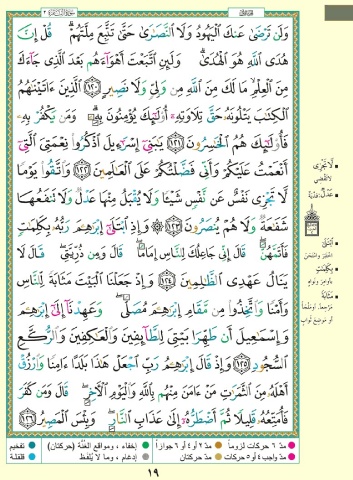 وَلَن تَرْضَىٰ عَنكَ ٱلْيَهُودُ وَلَا ٱلنَّصَٰرَىٰ حَتَّىٰ تَتَّبِعَ مِلَّتَهُمْ ۗ قُلْ إِنَّ
هُدَى ٱللَّهِ هُوَ ٱلْهُدَىٰ ۗ وَلَئِنِ ٱتَّبَعْتَ أَهْوَآءَهُم بَعْدَ ٱلَّذِى جَآءَكَ
مِنَ ٱلْعِلْمِ ۙ مَا لَكَ مِنَ ٱللَّهِ مِن وَلِىٍّ وَلَا نَصِيرٍ ١٢٠ ٱلَّذِينَ ءَاتَيْنَٰهُمُ
ٱلْكِتَٰبَ يَتْلُونَهُۥ حَقَّ تِلَاوَتِهِۦٓ أُو۟لَٰٓئِكَ يُؤْمِنُونَ بِهِۦ ۗ وَمَن يَكْفُرْ بِهِۦ
فَأُو۟لَٰٓئِكَ هُمُ ٱلْخَٰسِرُونَ ١٢١ يَٰبَنِىٓ إِسْرَٰٓءِيلَ ٱذْكُرُوا۟ نِعْمَتِىَ ٱلَّتِىٓ
أَنْعَمْتُ عَلَيْكُمْ وَأَنِّى فَضَّلْتُكُمْ عَلَى ٱلْعَٰلَمِينَ ١٢٢ وَٱتَّقُوا۟ يَوْمًا
لَّا تَجْزِى نَفْسٌ عَن نَّفْسٍ شَيْـًٔا وَلَا يُقْبَلُ مِنْهَا عَدْلٌ وَلَا تَنفَعُهَا
شَفَٰعَةٌ وَلَا هُمْ يُنصَرُونَ ١٢٣ ۞ وَإِذِ ٱبْتَلَىٰٓ إِبْرَٰهِـۧمَ رَبُّهُۥ بِكَلِمَٰتٍ
فَأَتَمَّهُنَّ ۖ قَالَ إِنِّى جَاعِلُكَ لِلنَّاسِ إِمَامًا ۖ قَالَ وَمِن ذُرِّيَّتِى ۖ قَالَ لَا
يَنَالُ عَهْدِى ٱلظَّٰلِمِينَ ١٢٤ وَإِذْ جَعَلْنَا ٱلْبَيْتَ مَثَابَةً لِّلنَّاسِ
وَأَمْنًا وَٱتَّخِذُوا۟ مِن مَّقَامِ إِبْرَٰهِـۧمَ مُصَلًّى ۖ وَعَهِدْنَآ إِلَىٰٓ إِبْرَٰهِـۧمَ
وَإِسْمَٰعِيلَ أَن طَهِّرَا بَيْتِىَ لِلطَّآئِفِينَ وَٱلْعَٰكِفِينَ وَٱلرُّكَّعِ
ٱلسُّجُودِ ١٢٥ وَإِذْ قَالَ إِبْرَٰهِـۧمُ رَبِّ ٱجْعَلْ هَٰذَا بَلَدًا ءَامِنًا وَٱرْزُقْ
أَهْلَهُۥ مِنَ ٱلثَّمَرَٰتِ مَنْ ءَامَنَ مِنْهُم بِٱللَّهِ وَٱلْيَوْمِ ٱلْءَاخِرِ ۖ قَالَ وَمَن كَفَرَ
فَأُمَتِّعُهُۥ قَلِيلًا ثُمَّ أَضْطَرُّهُۥٓ إِلَىٰ عَذَابِ ٱلنَّارِ ۖ وَبِئْسَ ٱلْمَصِيرُ ١٢٦
لَا تَجْزِى
لا تقضي
عَدْلٌ: فدية
ٱبْتَلَىٰ
بِكَلِمَٰتٍ
بأوامر ونواهٍ
مَثَابَةً
مدّ ٦ حركات لزوماً
مدّ ٢ أو ٤ أو ٦ جوازاً
إخفاء، ومواقع الغُنَّة (حركتان)
تفخيم
مدّ واجب ٤ أو ٥ حركات
مدّ حركتان
إدغام، وما لا يُلفظ
قلقلة
١٩